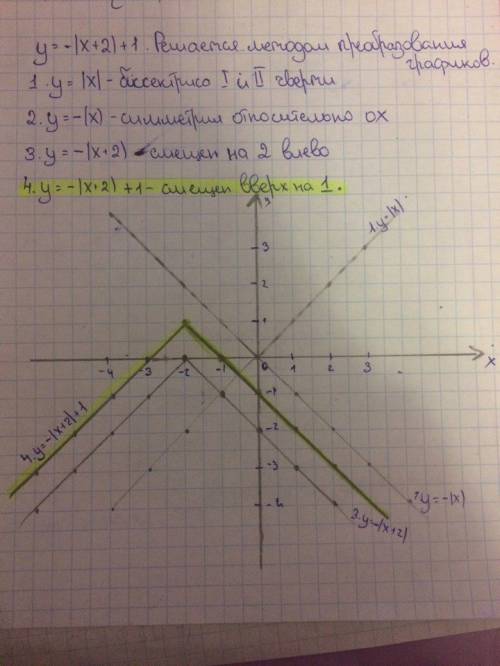 y = -|x+2|+1. Решается методом преобразования
графиков.
1. y = |x| - биссектрисо I и II чверти
2. y = -|x| - симметрия относительно ox
3. y = -|x+2| - смещен на 2 влево
4. y = -|x+2| +1 - смещен вверх на 1.
y
1. y=|x|
3
2
1
x
-4 -3 -2 -1 0 1 2 3
-1
-2
-3
-4
4. y=-|x+2|+1
2. y=-|x|
3. y=-|x+2|